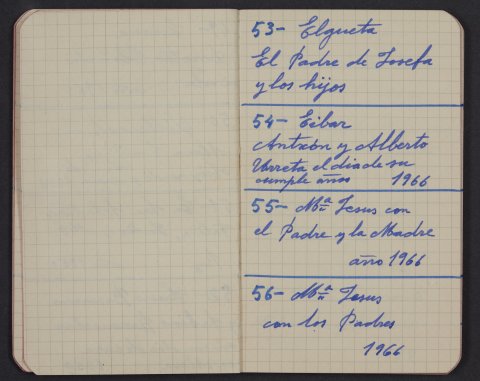 53- Elgueta
El Padre de Josefa
y los hijos
54- Eibar
Antxón y Alberto
Urreta el dia de su
cumple años 1966
55- Mª Jesus con
el Padre y la Madre
año 1966
56- Mª Jesus
con los Padres
1966